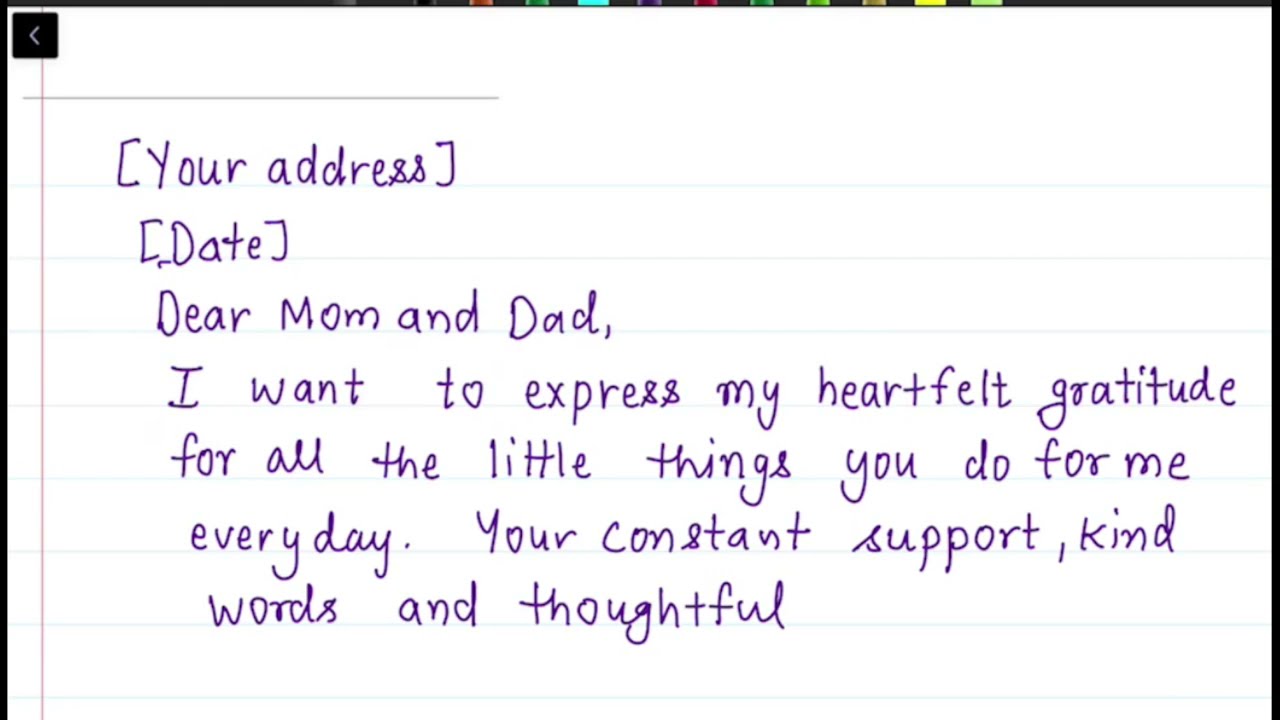 [Your address]
[Date]
Dear Mom and Dad,
I want to express my heartfelt gratitude
for all the little things you do for me
everyday. Your constant support, kind
words and thoughtful